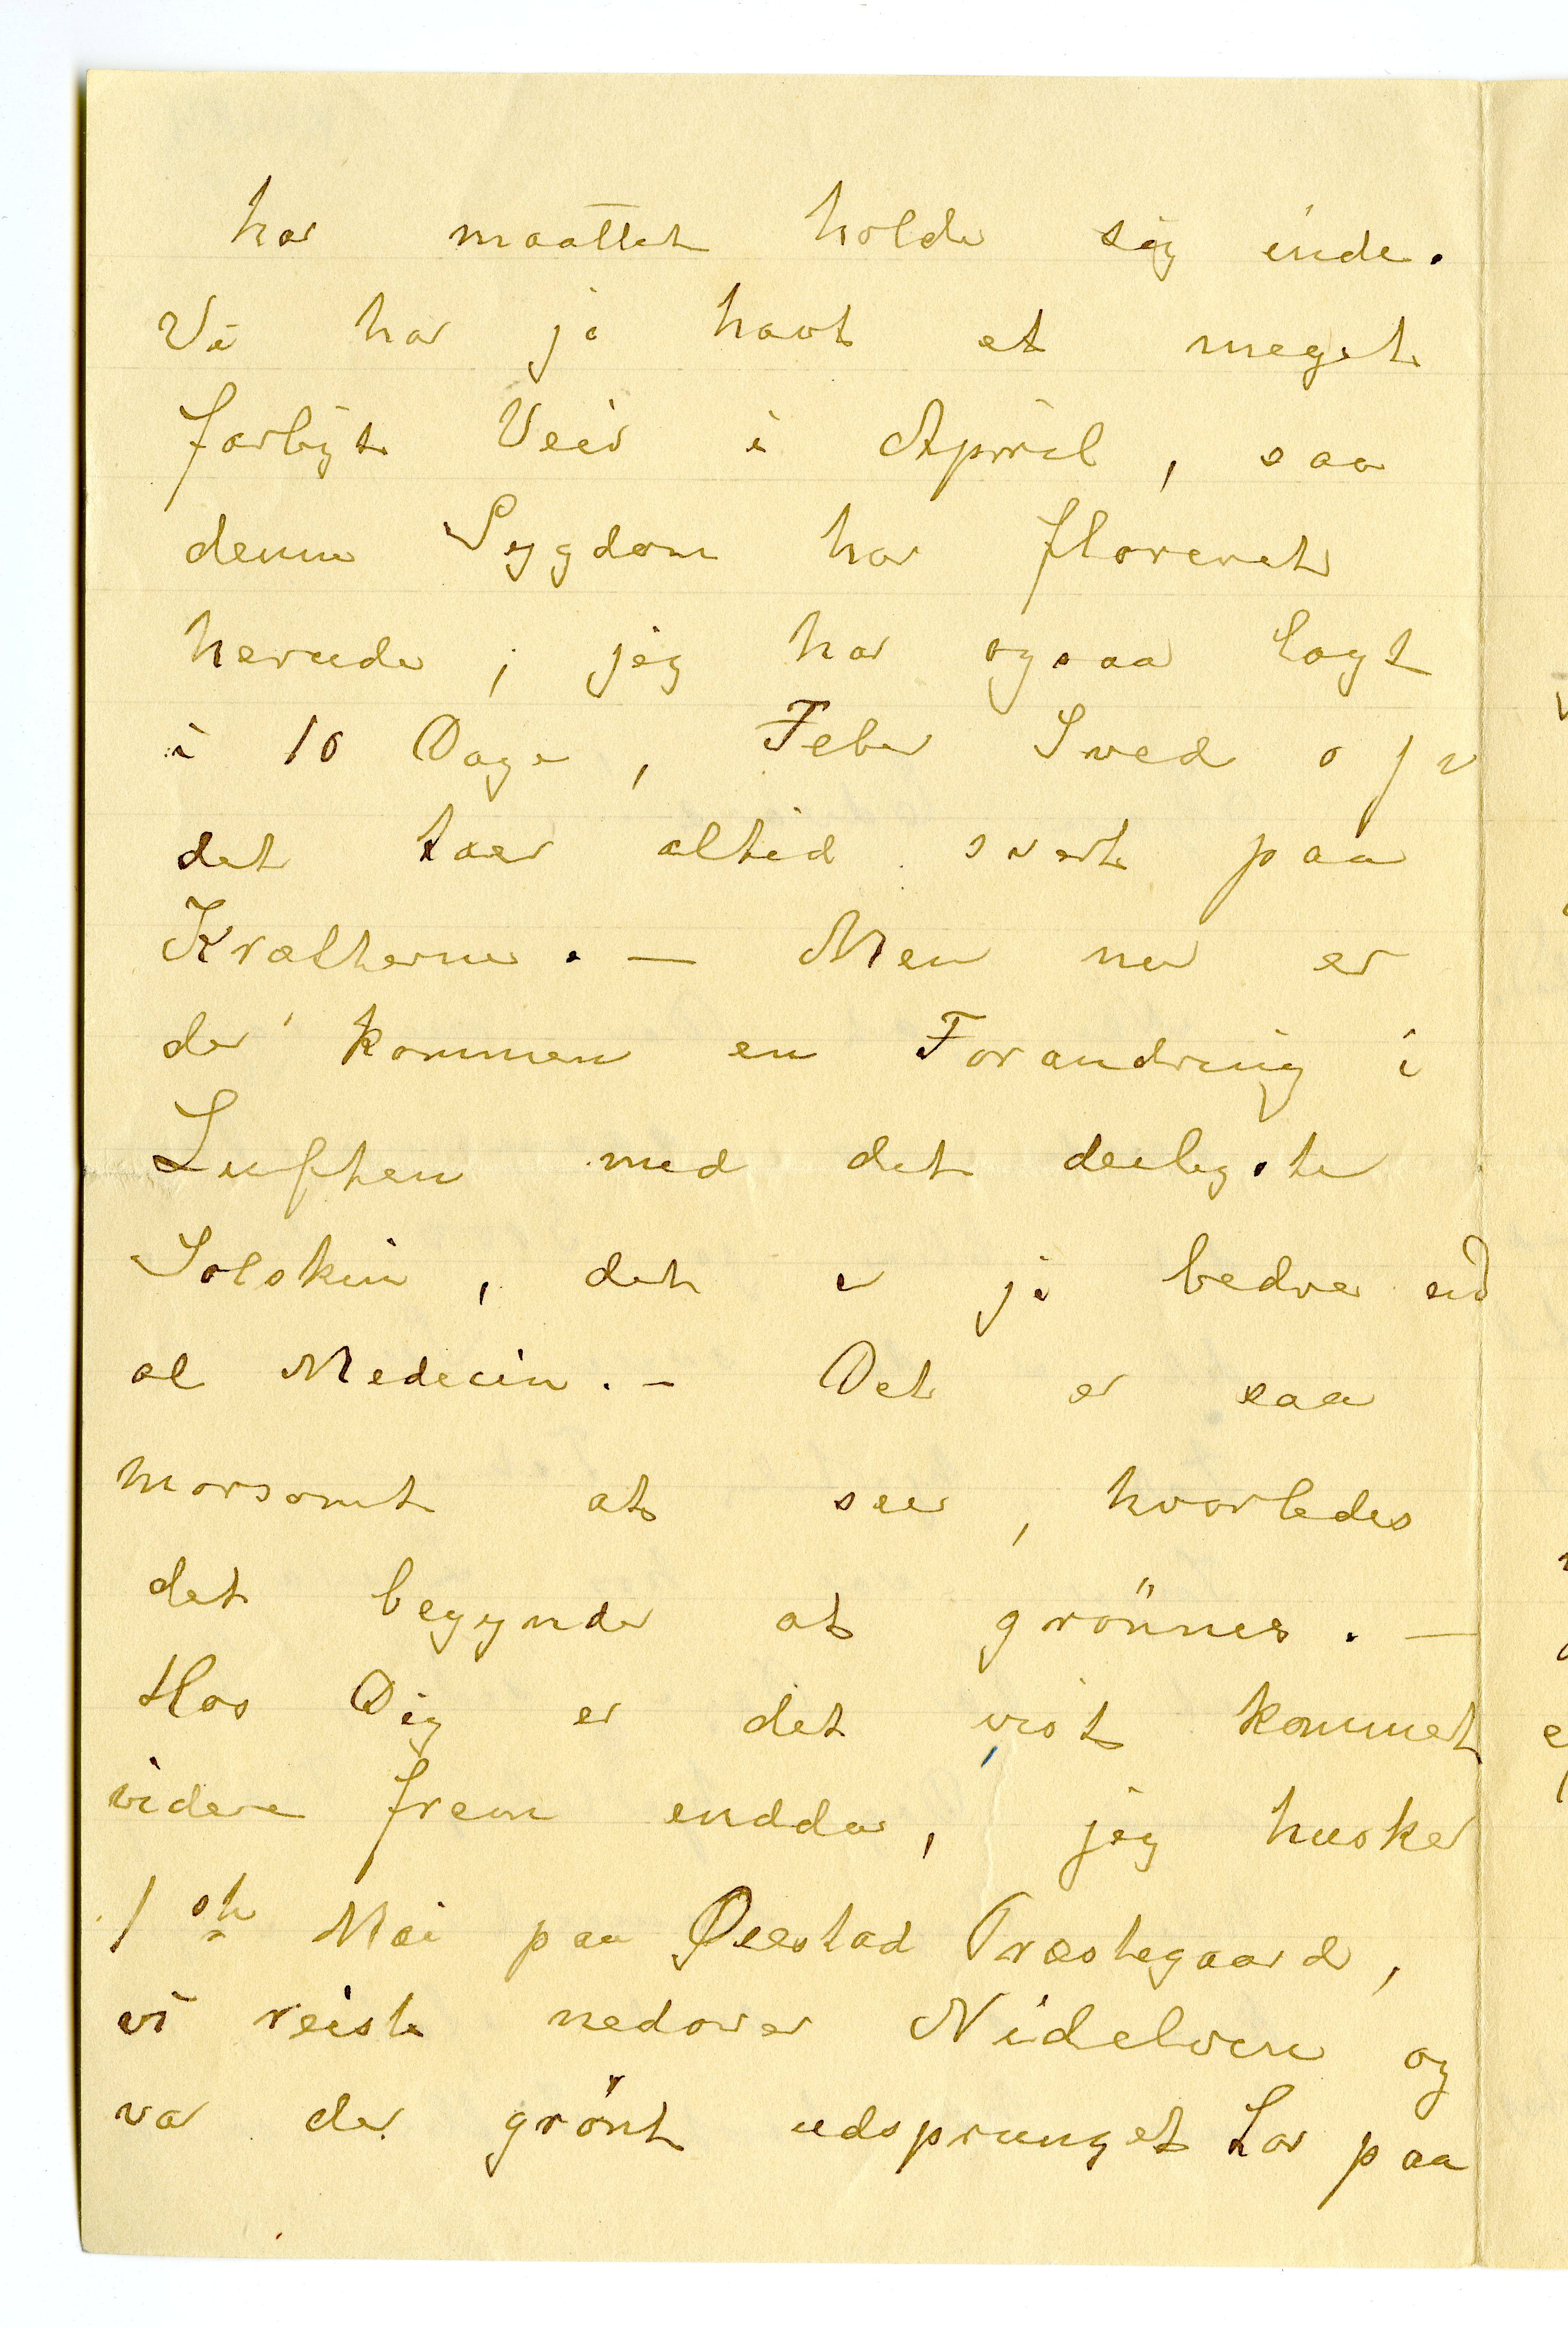 har maattet holde sig inde.
Vi har jo havt et meget
farligt Veir i April, saa
denne Sygdom har floreret
herude; jeg har ogsaa lagt
i 10 Dage, Feber Sved o s v
det taer altid svert paa
Kræfterne. — Men nu er
der kommen en Forandring i
Luften med det deiligste
Solskin, det er jo bedre end
al Medecin. — Det er saa
morsomt at see, hvorledes
det begynder at grönnes. —
Hos Dig er det vist kommet
videre frem endda, jeg husker
1ste Mai paa Øiestad Præstegaard,
vi reiste nedover Nidelven og
var der grönt udsprunget Lov paa